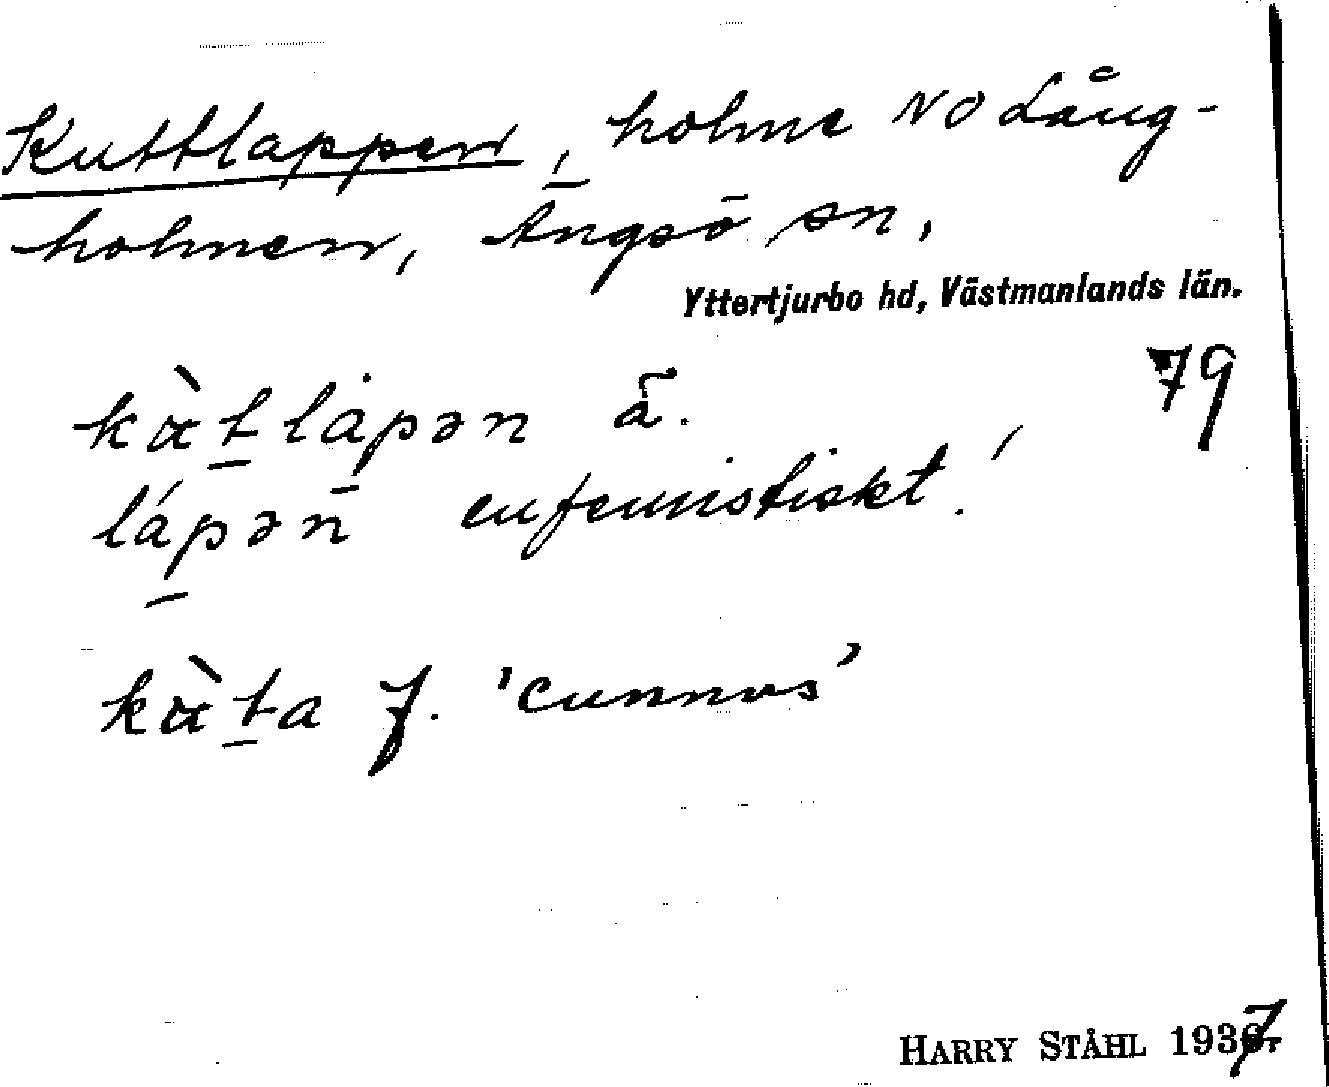 Kuttlappen, holme NO Lång-
holmen, Ängsö sn,
Yttertjurbo hd, Västmanlands län.
79
kàtlȧpən ä.
lápən eufemistiskt.
kàta f. 'cunnus'
HARRY STÅHL 1937